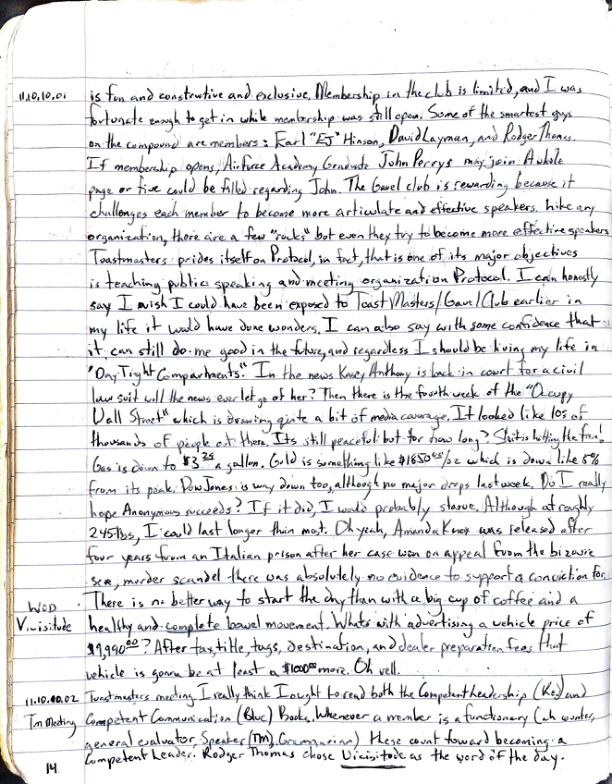 11.10.10.01 is fun and constructive and exclusive. Membership in the club is limited, and I was
fortunate enough to get in while membership was still open. Some of the smartest guys
on the compound are members: Earl "EJ" Hinson, David Layman, and Rodger Thomas.
If membership opens, Airforce Academy Graduate John Perrys may join. A whole
page or five could be filled regarding John. The Gavel club is rewarding because it
challenges each member to become more articulate and effective speakers. Like any
organization, there are a few "rocks" but even they try to become more effective speakers
Toastmasters prides itself on Protocol, in fact, that is one of its major objectives
is teaching public speaking and meeting organization Protocol. I can honestly
say I wish I could have been exposed to Toast Masters/Gavel Club earlier in
my life it would have done wonders. I can also say with some confidence that
it can still do me good in the future, and regardless I should be living my life in
"Day Tight Compartments". In the news Kasey Anthony is back in court for a civil
law suit will the news ever let go of her? Then there is the fourth week of the "Occupy
Wall Street" which is drawing quite a bit of media coverage. It looked like 10s of
thousands of people out there. Its still peaceful but for how long? Shit is hitting the fan!
Gas is down to $3.25 a gallon. Gold is something like $1650.00/oz which is down like 5%
from its peak. Dow Jones is way down too, although no major drops last week. Do I really
hope Anonymous succeeds? If it did, I would probably starve. Although at roughly
245lbs, I could last longer than most. Oh yeah, Amanda Knox was released after
four years from an Italian prison after her case won on appeal from the bizarre
sex, murder scandel there was absolutely no evidence to support a conviction for.
There is no better way to start the day than with a big cup of coffee and a
WOD
Vicisitude healthy and complete bowel movement. Whats with advertising a vehicle price of
$9,990.00? After tax, title, tags, destination, and dealer preparation fees that
vehicle is gonna be at least a $1000.00 more. Oh well.
11.10.10.02 Toastmasters meeting. I really think I ought to read both the Competent Leadership (Red) and
Tm Meeting Competent Communication (Blue) Books. Whenever a member is a functionary (ah counter,
general evaluator, Speaker, (TM), Grammarian) these count toward becoming a
Competent Leader. Rodger Thomas chose Vicisitode as the word of the day.
14